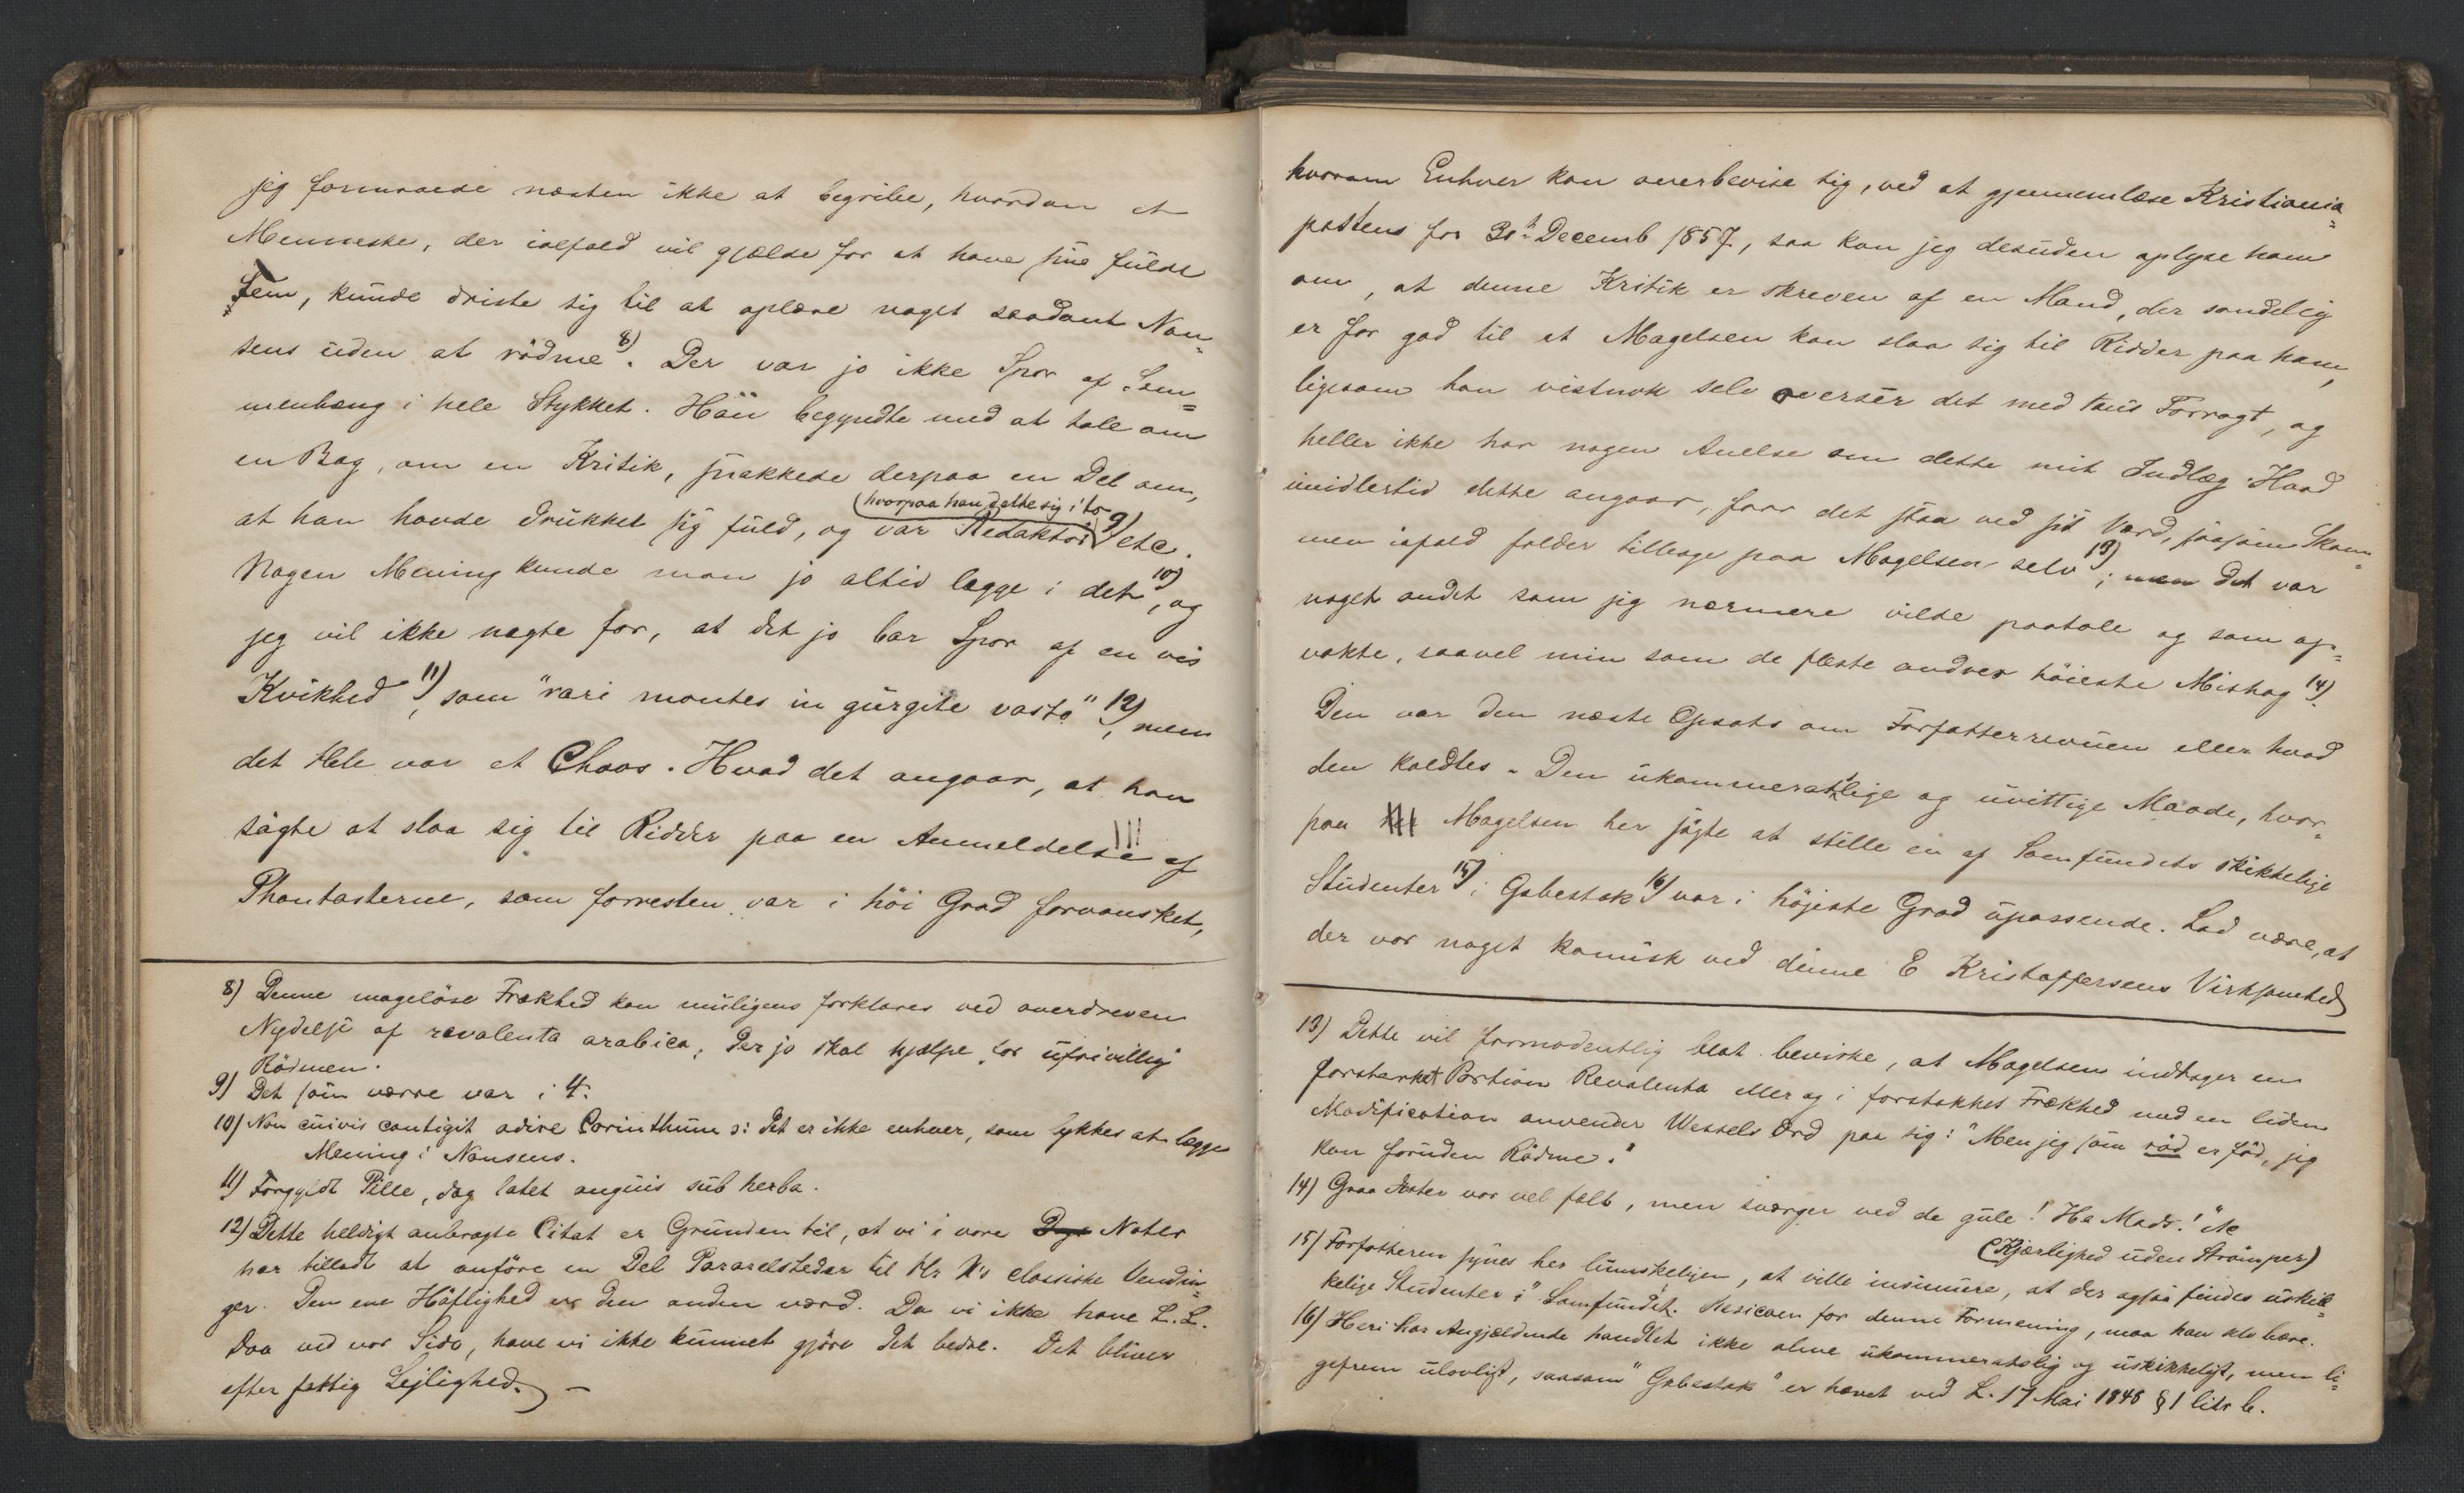 jeg formaaede næsten ikke at begribe, hvordan et
Menneske, der ialfald vil gjælde for at have sine fulde
Fem, kunde driste sig til at oplæse noget saadant Non-
sens uden at rödme 8). Der var jo ikke Spor af Sam=
menhæng i hele Stykket. Han begyndte med at tale om
en Bog, om en Kritik, snakkede derpaa en Del om,
at han havde drukket sig fuld, og var Redaktör (hvorpaa han delte sig i to 9) etc.
Nogen Mening kunde man jo altid lægge i det 10), og
jeg vil ikke nægte for, at det jo bar Spor af en vis
Kvikhed 11), som "rari montes in gurgite vasto" 12), men
det Hele var et Chaos. Hvad det angaar, at han
sögte at slaa sig til Ridder paa en Anmeldelse af
Phantasterne, som forresten var i höi Grad forvansket,
8) Denne magelöse Frækhed kan muligens forklares ved overdreven
Nydelse af revalenta arabica, der jo skal hjælpe for ufrivillig
Rödmen.
9) Det som værre var i 4.
10) Non cuivis contigit adire Corinthum ɔ: det er ikke enhver, som lykkes at lægge
Mening i Nonsens.
11) Forgyldt Pille, dog latet anguis sub herba.
12) Dette heldigt anbragte Citat er Grunden til, at vi i vore Noter
har tilladt at anföre en Del Pararelsteder til Hr K's classiske Vendin
ger. Den ene Höflighed er den anden værd. Da vi ikke have L. L.
Daa ved vor Side, have vi ikke kunnet gjöre det bedre. Det bliver
efter fattig Lejlighed. –
hvorom Enhver kan overbevise sig, ved at gjennemlæse Kristiania=
postens for 31te Decemb 1857, saa kan jeg desuden oplyse ham
om, at denne Kritik er skreven af en Mand, der sandelig
er for god til at Magelsen kan slaa sig til Ridder paa ham,
ligesom han vistnok selv overser det med taus Forragt, og
heller ikke har nogen Anelse om dette mit Indlæg. Hvad
imidlertid dette angaar, faar det staa ved sit Værd, saasom Skam=
men isaafald falder tilbage paa Magelsen selv 13); men det var
noget andet som jeg nærmere vilde paatale og som op=
vakte, saavel min som de fleste andres höieste Mishag 14).
Den var den næste Opsats om Forfatterrevuen eller hvad
den kaldtes. Den ukammeratslige og uvittige Maade, hvor=
paa Magelsen her sögte at stille en af Samfundets skikkelige
Studenter 15) i Gabestok 16) var i höjeste Grad upassende. Lad være, at
der var noget komisk ved denne E Kristoffersens Virksomhed
13) Dette vil formodentlig blot bevirke, at Magelsen indtager en
forstærket Portion Revalenta eller og i forstokket Frækhed med en liden
Modification anvender Wessels Ord paa sig: "Men jeg som röd er föd, jeg
kan foruden Rödme."
14) Graa Hoster var vel falt, men sværger ved de gule! Ha Mads!"
(Kjærlighed uden Strömper)
15) Forfatteren synes her lumskeligen, at ville insinuere, at der ogsaa findes uskik=
kelige Studenter i "Samfundet. Resicoen for denne Formening, maa han selv bære.
16) Heri har Angjældende handlet ikke alene ukammeratslig og uskikkeligt, men li=
gefrem ulovligt, saasom "Gabestok" er hævet ved L. 17 Mai 1848 § 1 litr b.